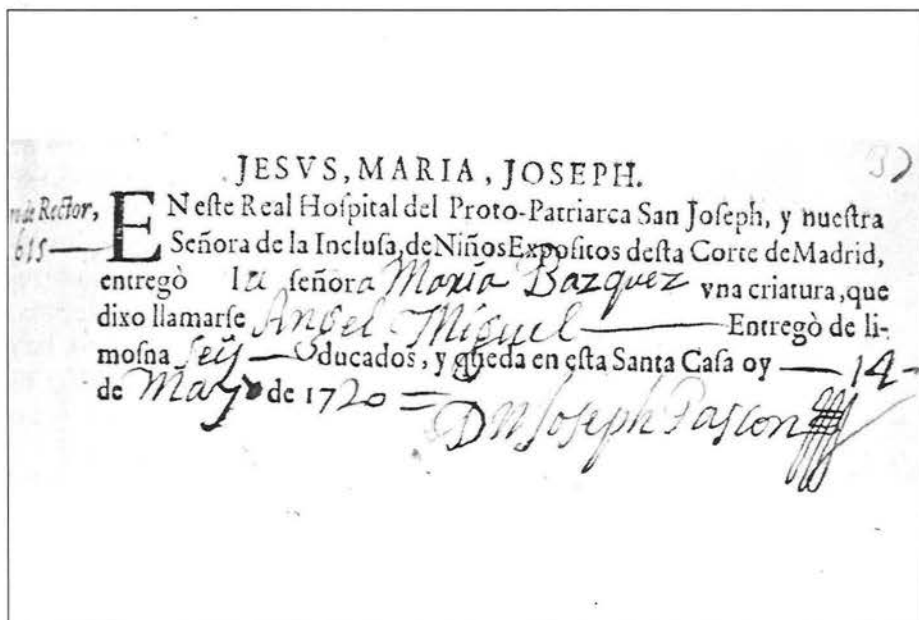 37
JESVS, MARIA, JOSEPH.
de Rector,
615
ENeste Real Hospital del Proto-Patriarca San Joseph, y nuestra
Señora de la Inclusa, de Niños Expositos desta Corte de Madrid,
entregò la señora Maria Bazquez vna criatura, que
dixo llamarse Angel Miguel Entregò de li-
mosna seis ducados, y queda en esta Santa Casa oy 14
de Mayo de 1720 =
Dn Joseph